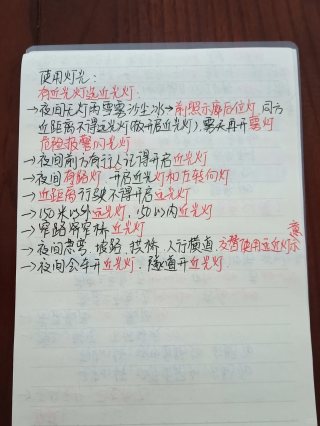 使用灯光：
有近光灯选近光灯：
→夜间无灯雨雪雾沙尘冰→前照示廓后位灯，同方
近距离不得远光灯(故开启近光灯)，雾天再开雾灯
危险报警闪光灯
→夜间前方有行人记得开启近光灯
→夜间有路灯，开启近光灯和左转向灯
→近距离行驶不得开启远光灯
→150米以外远光灯，150以内近光灯
→窄路窄桥近光灯
→夜间急弯、坡路、拱桥、人行横道，交替使用远近灯示意
→夜间会车开近光灯，隧道开近光灯.